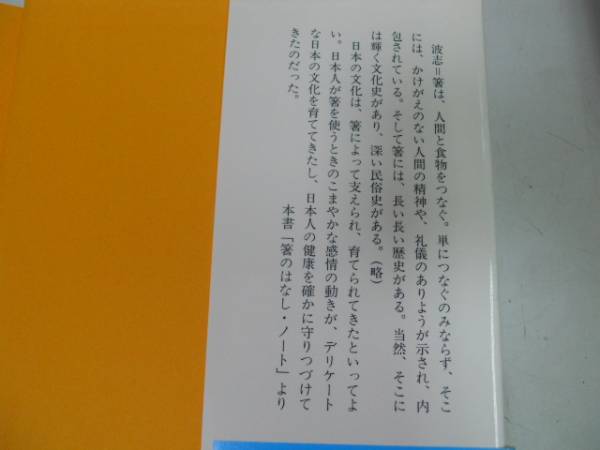 波志＝箸は、人間と食物をつなぐ。単につなぐのみならず、そこ
には、かけがえのない人間の精神や、礼儀のありようが示され、内
包されている。そして箸には、長い長い歴史がある。当然、そこに
は輝く文化史があり、深い民俗史がある。（略）
日本の文化は、箸によって支えられ、育てられてきたといってよ
い。日本人が箸を使うときのこまやかな感情の動きが、デリケート
な日本の文化を育ててきたし、日本人の健康を確かに守りつづけて
きたのだった。
本書「箸のはなし・ノート」より